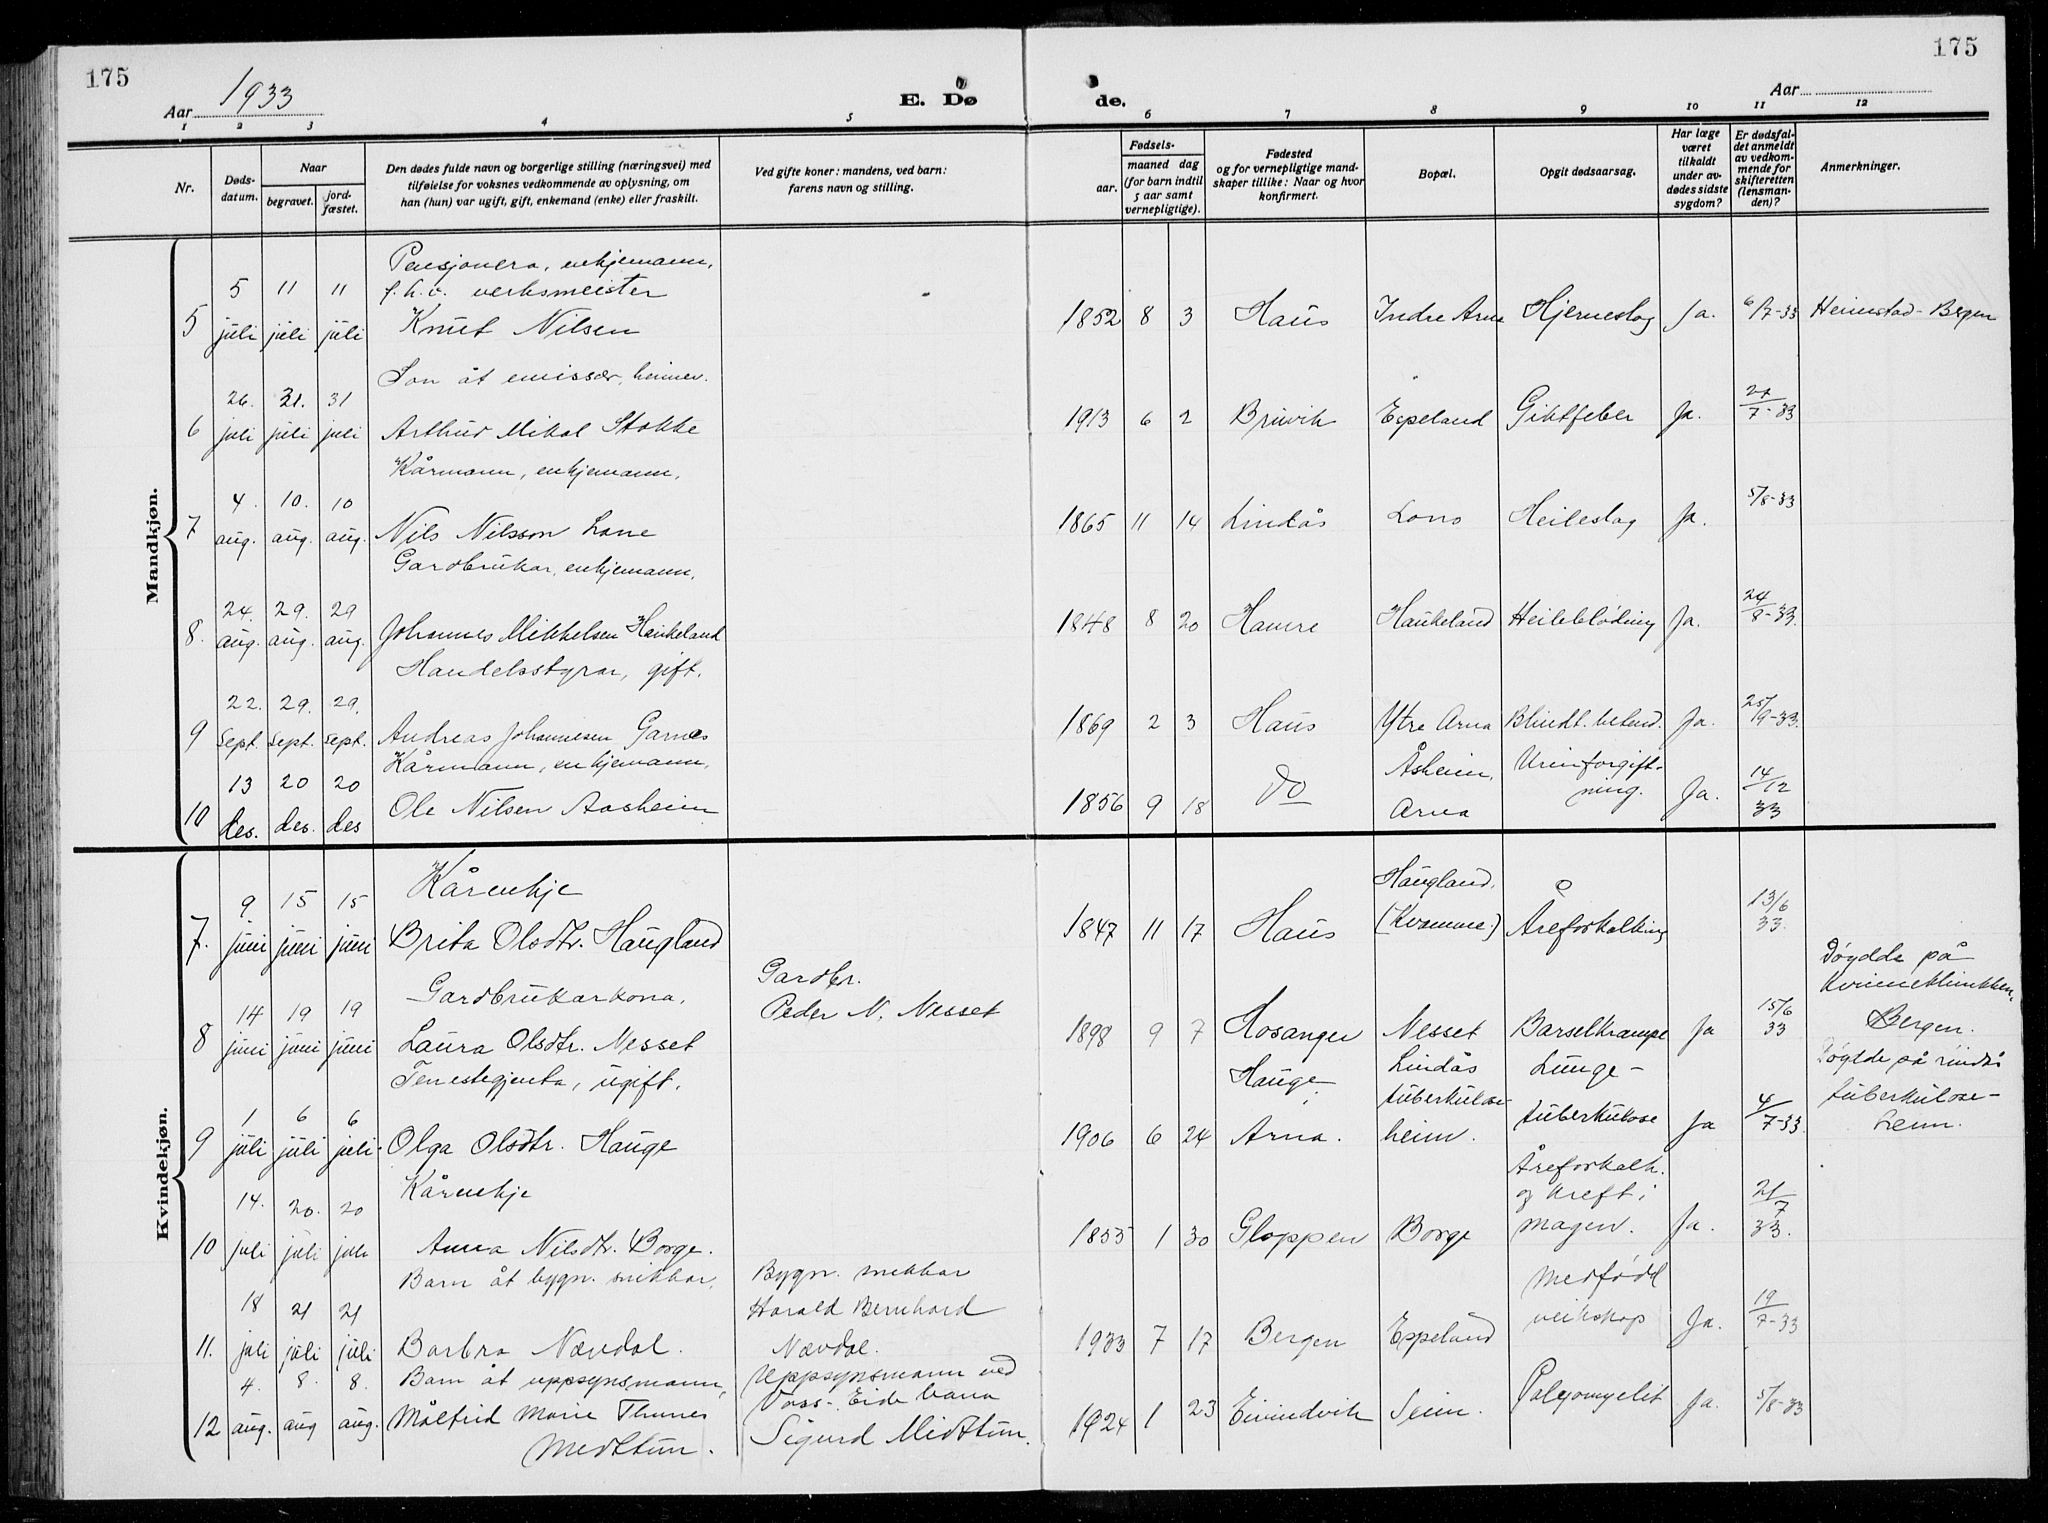 175
175
Aar 1933
E. Dø
de.
Aar
1 2 3 4 5 6 7 8 9 10 11 12
Nr.
Døds-
datum.
Naar
begravet.
jord-
fæstet.
Den dødes fulde navn og borgerlige stilling (næringsvei) med
tilføielse for voksnes vedkommende av oplysning, om
han (hun) var ugift, gift, enkemand (enke) eller fraskilt.
Ved gifte koner: mandens, ved barn:
farens navn og stilling.
Fødsels-
aar.
maaned dag
(for barn indtil
5 aar samt
vernepligtige).
Fødested
og for vernepligtige mand-
skaper tillike: Naar og hvor
konfirmert.
Bopæl.
Opgit dødsaarsag.
Har læge
været
tilkaldt
under av-
dødes sidste
sygdom?
Er dødsfal-
det anmeldt
av vedkom-
mende for
skifteretten
(lensman-
den)?
Anmerkninger.
Mandkjøn.
Pensjonera, enkjemann,
5 11 11 f.h.v. verksmeister
5 juli juli juli Knut Nilsen 1852 8 3 Haus Indre Arna Hjerneslag Ja. 6/7-33 Heimstad - Bergen
Son åt emissær, heimev.
26. 31. 31
6 juli juli juli Arthur Mikal Stokke 1913 6 2 Bruvik Espeland Giktfeber Ja. 27/7-33
Kårmann, enkjemann.
4. 10. 10
7 aug. aug. aug. Nils Nilsson Lone 1865 11 14 Lindås Lono Heileslag Ja. 5/8-33
Gardbrukar, enkjemann.
24. 29. 29
8. aug. aug. aug. Johannes Mikkelsen Haukeland 1848 8 20 Hamre Haukeland Heilebløding Ja. 24/8-33.
Handelsstyrar, gift.
22. 29. 29.
9 Sept. Sept. Sept. Andreas Johannesen Garnes 1869 2 3 Haus Ytre Arna Blindt. betend. Ja. 25/9-33.
Kårmann, enkjemann.
13 20 20
10 des. des. des Ole Nilsen Aasheim 1856 9 18 Do Åsheim, Arna Urinforgift-
ning. Ja. 14/12 33
Kvindekjøn.
Kårenkje
9 15 15
7. juni juni juni Brita Olsdtr. Haugland 1847 11 17 Haus Haugland. (Kvamme.) Åreforkalking 13/6 33.
Gardbrukarkona.
14 19 19
8 juni juni juni Laura Olsdtr. Nesset Gardbr.
Peder N. Nesset 1898 9 7 Hosanger Nesset Barselkrampe Ja 15/6 33 Døydde på
Kvinneklinikken,
Bergen.
Tenestegjenta, ugift.
1 6 6
9 juli juli juli. Olga Olsdtr. Hauge 1906 6 24 Hauge,
Arna. Lindås
tuberkulose-
heim. Lunge-
tuberkulose Ja 4/7-33. Døydde på Lindås
tuberkulose-
heim.
Kårenkje
14. 20. 20
10 juli juli juli Anna Nilsdtr. Borge. 1855 1 30 Gloppen Borge Åreforkalk.
og kreft i
magen. Ja. 21/7 33.
Barn åt bygn. snikkar,
18 21 21
11. juli juli juli Barbra Nævdal. Bygn. snekkar
Harald Bernhard
Nævdal. 1933 7 17 Bergen Espeland medfødd
veikskap Ja. 19/7-33
4. 8. 8. Barn åt uppsynsmann,
12 aug. aug aug. Målfrid Marie Thunes
Midttun. Uppsynsmann ved
Voss-Eide bana
Sigurd Midttun. 1924 1 23 Eivindvik Seim. Polyomyelit Ja. 5/8-33